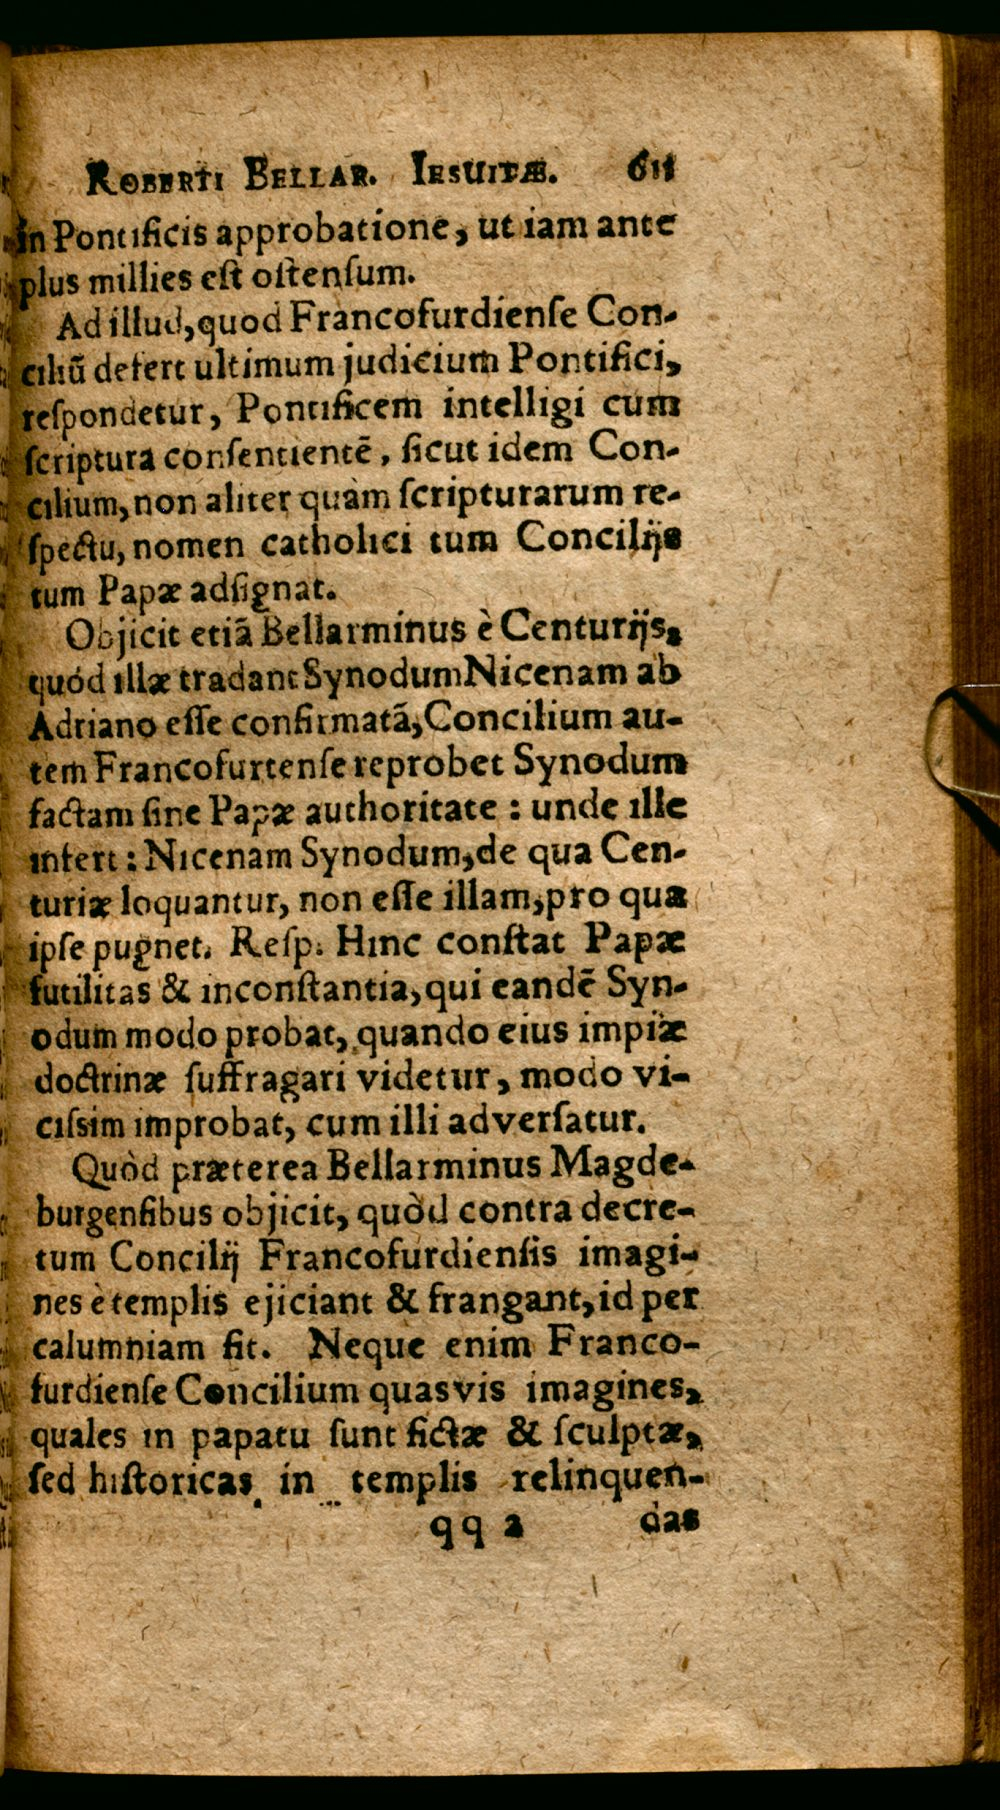 ROBERTI BELLAR. IESUITÆ. 611
in Pontificis approbatione, ut iam ante
plus millies eſt oſtenſum.
Ad illud, quod Francofurdienſe Con-
ciliũ defert ultimum judicium Pontifici,
reſpondetur, Pontificem intelligi cum
ſcriptura conſentientẽ, ſicut idem Con-
cilium, non aliter quàm ſcripturarum re-
ſpectu, nomen catholici tum Concilijs
tum Papæ adſignat.
Objicit etiã Bellarminus è Centurijs,
quód illæ tradant Synodum Nicenam ab
Adriano eſſe confirmatã, Concilium au-
tem Francofurtenſe reprobet Synodum
factam ſine Papæ authoritate : unde ille
infert : Nicenam Synodum, de qua Cen-
turiæ loquantur, non eſſe illam, pro qua
ipſe pugnet. Reſp. Hinc conſtat Papæ
futilitas & inconſtantia, qui eandẽ Syn-
odum modo probat, quando eius impiæ
doctrinæ ſuffragari videtur, modo vi-
ciſsim improbat, cum illi adverſatur.
Quòd præterea Bellarminus Magde-
burgenſibus objicit, quòd contra decre-
tum Concilij Francofurdienſis imagi-
nes è templis ejiciant & frangant, id per
calumniam fit. Neque enim Franco-
furdienſe Concilium quasvis imagines,
quales in papatu ſunt fictæ & ſculptæ,
ſed hiſtoricas in templis relinquen-
qq 2 das